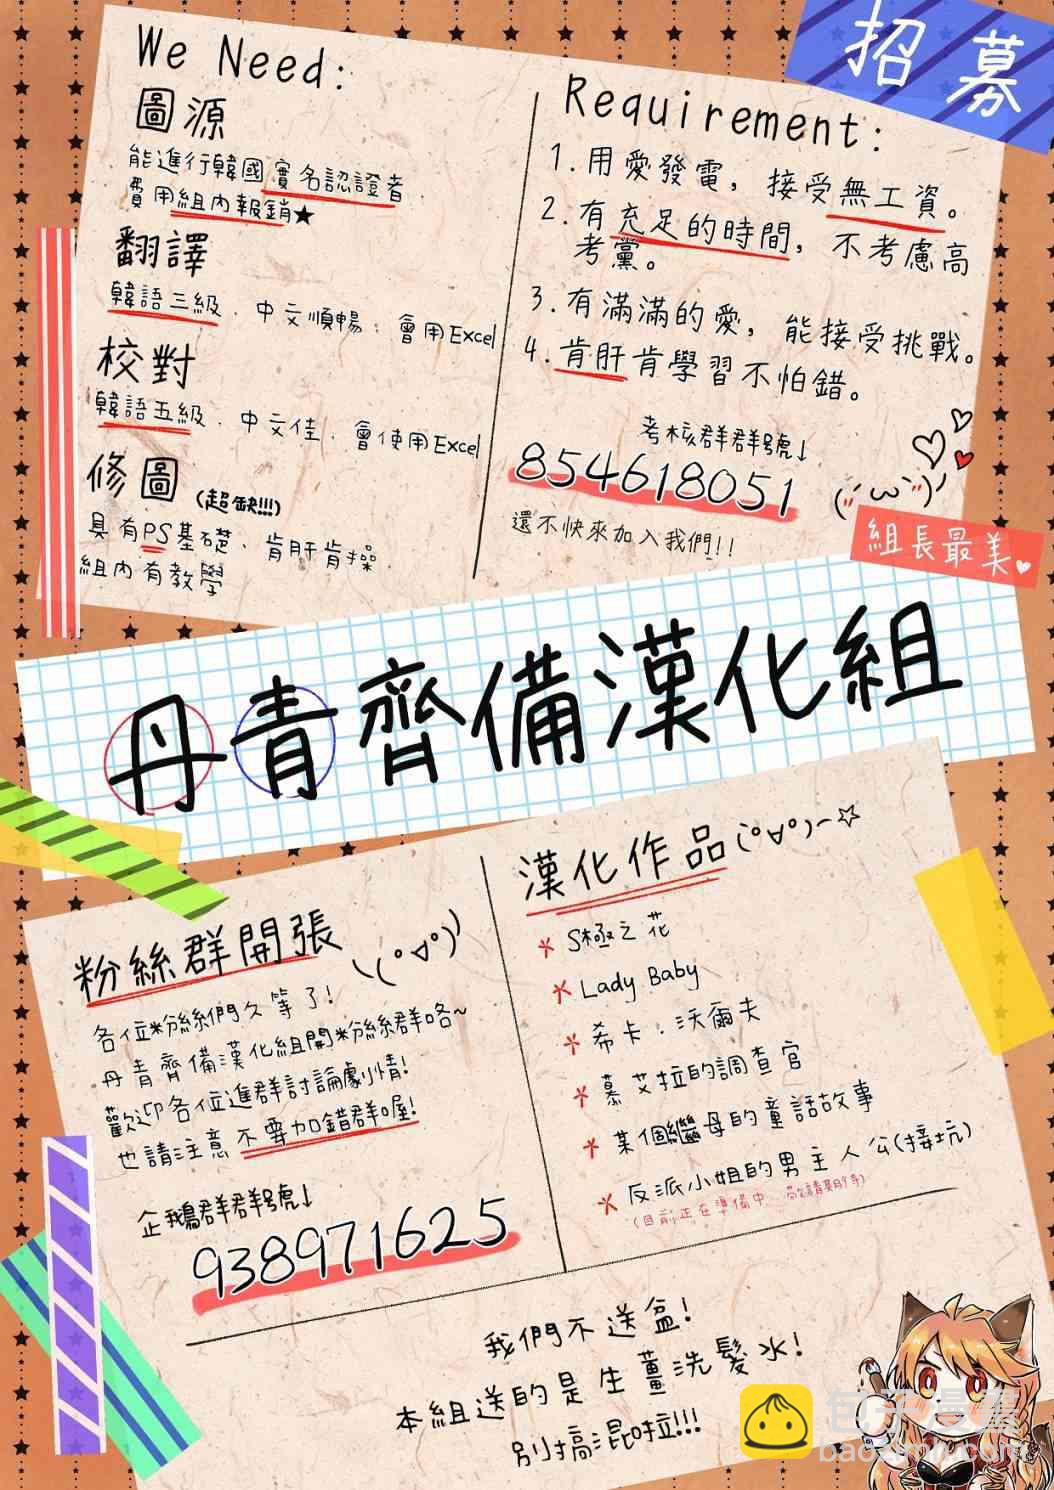 招募
We Need:
圖源
能進行韓國實名認證者
費用組內報銷★
翻譯
韓語三級、中文順暢、會用Excel
校對
韓語五級、中文佳、會使用Excel
修圖(超缺!!!)
具有PS基礎、肯肝肯操
組內有教學
Requirement:
1.用愛發電，接受無工資。
2.有充足的時間，不考慮高
考黨。
3.有滿滿的愛，能接受挑戰。
4.肯肝肯學習不怕錯。
考核群群號↓
854618051
還不快來加入我們!!
組長最美
丹青齊備漢化組
粉絲群開張
各位粉絲們久等了!
丹青齊備漢化組開粉絲群咯~
歡迎各位進群討論劇情!
也請注意不要加錯群喔!
企鵝群群號↓
938971625
漢化作品(°∀°)~☆
S極之花
Lady Baby
希卡·沃爾夫
慕艾拉的調查官
某個繼母的童話故事
反派小姐的男主人公(接坑)
(目前正在準備中 敬請期待)
我們不送盒!
本組送的是生薑洗髮水!
別搞混啦!!!
包子漫畫
baozimh.com